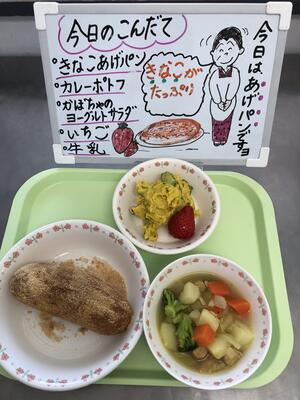 今日のこんだて
・きなこあげパン
・カレーポトフ
・かぼちゃの
ヨーグルトサラダ
・いちご
・牛乳
きなこが
たっぷり
今日はあげパンですヨ